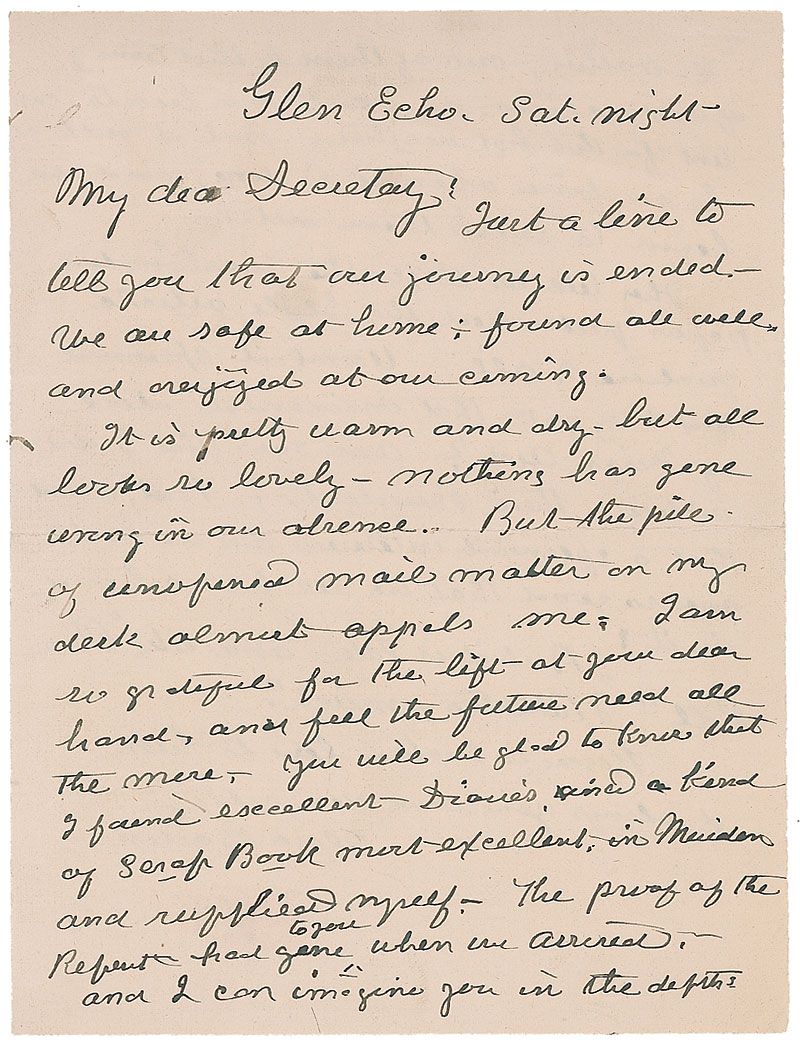 Glen Echo. Sat. night
My dea Secretary:
Just a line to
tell you that our journey is ended.—
We are safe at home; found all well,
and at our coming.
It is pretty warm and dry - but all
looks so lovely - nothing has gone
wrong in our absence. But the pile
of unopened mail matter on my
desk almost appals me: I am
so grateful for the lift at your dear
hand, and feel the future need all
the more,- You will be glad to know that
I found excellent Diaries, and a kind
of Scrap Book most excellent, in Meriden
and supplied myself.- The proof of the
to you
Report had gone when we arrived.-
and I can imagine you in the depths